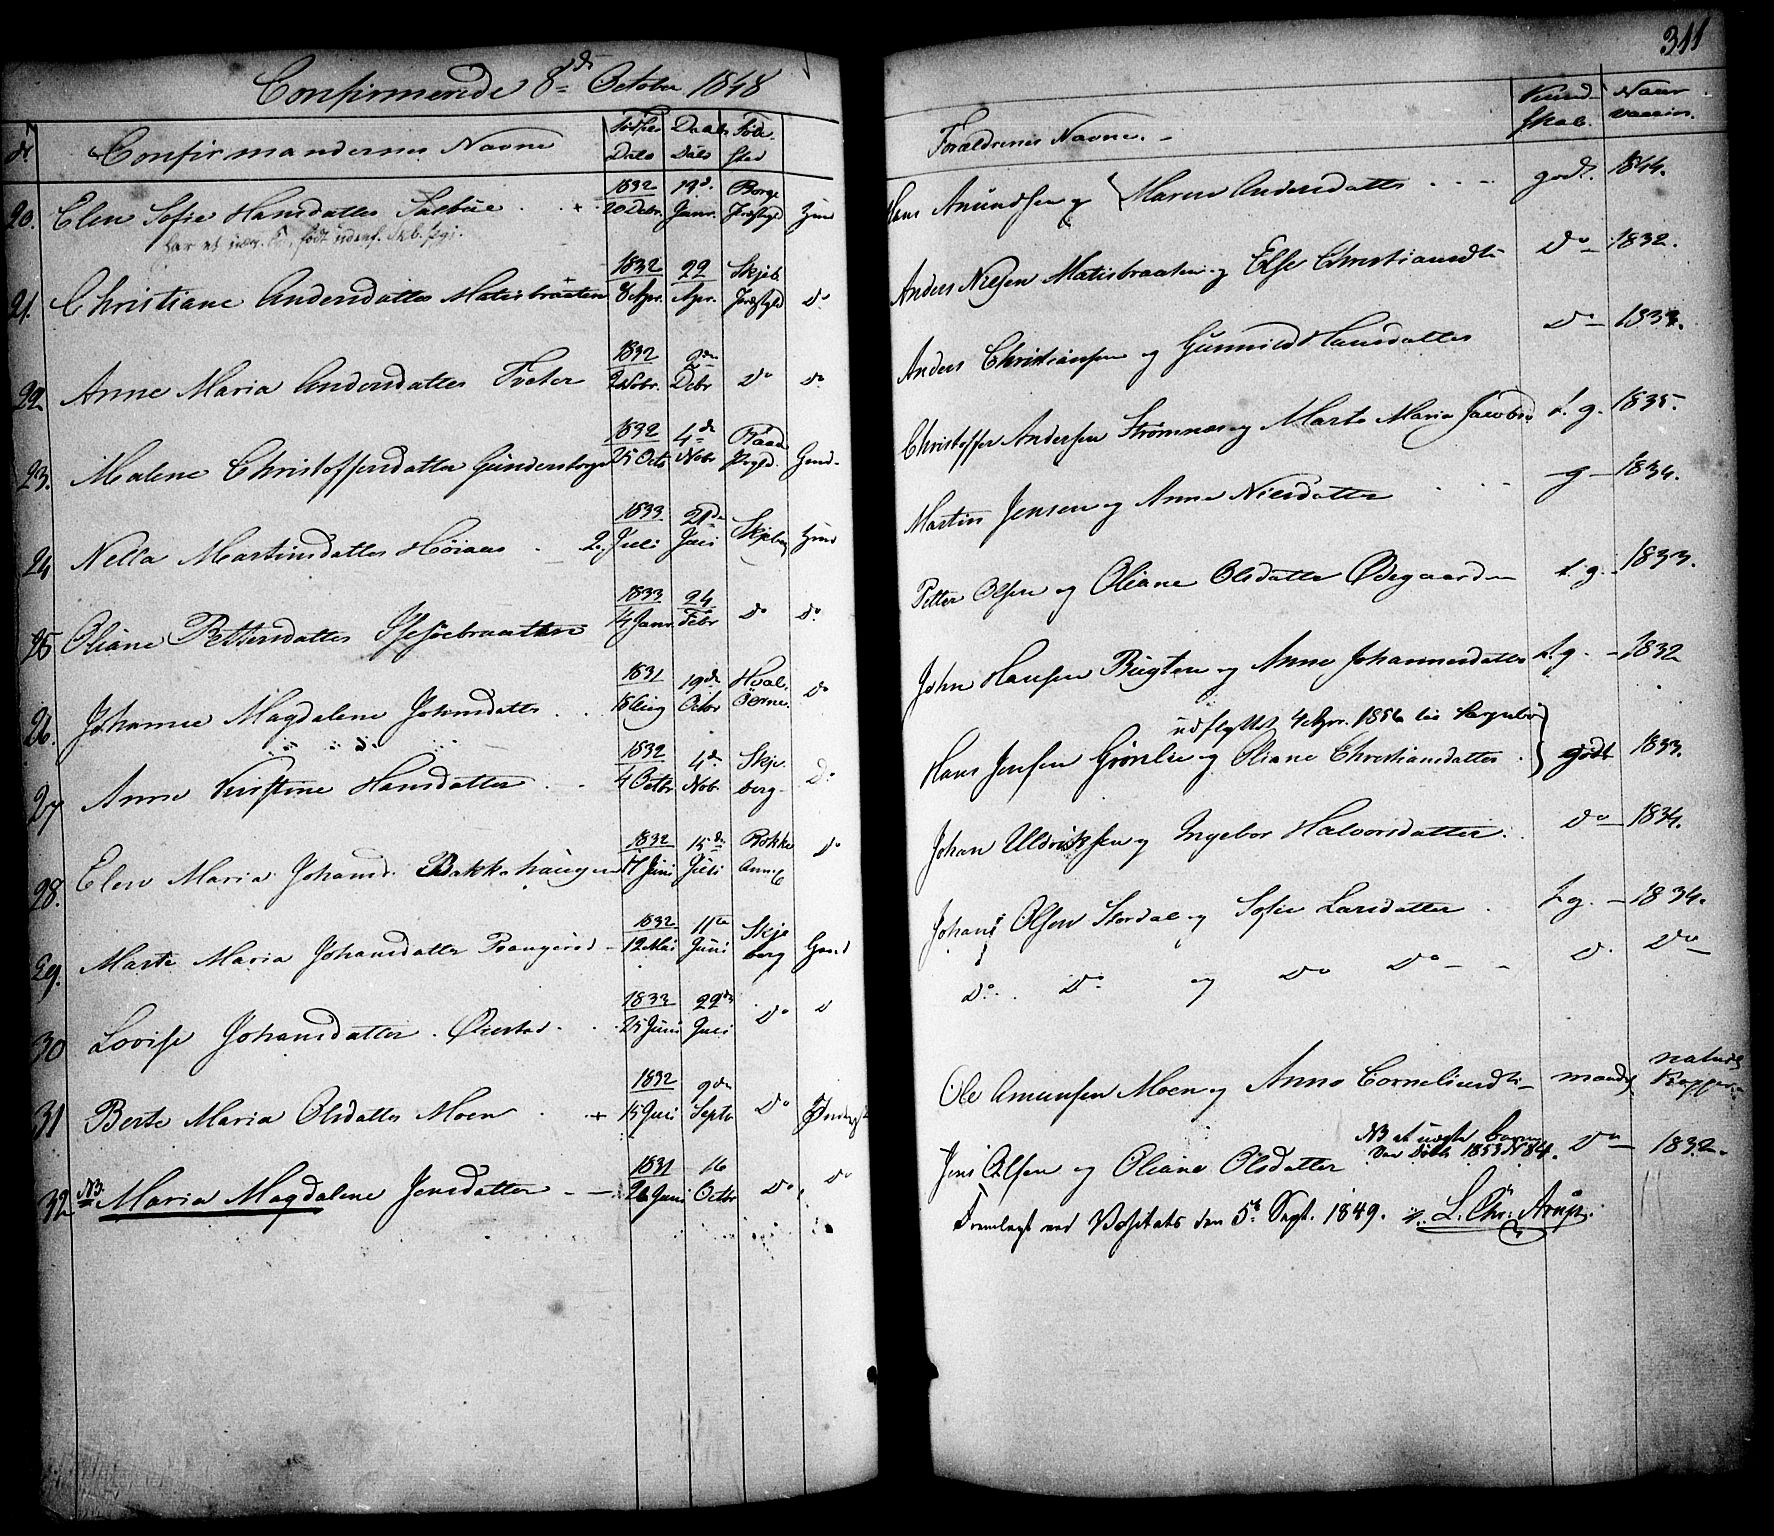 311
Confirmerede 8de October 1848
Nr Confirmandernes Navne Fødsels Dato Daabs Dato Føde Sted
Forældrenes Navne. Kund Skab. Naar vaccin.
20. Elen Sofie Hansdatter 1832 20 Debr. 19d. Janr. Borge Præstgld
Hans Amundsen og Maren Andersdatter godt. 1844.
21. Christiane Andersdatter Matisbraaten 1832 8 Apr. 22 Apr. Skjeb Præstgld do
Anders Nielsen Matisbraaten og Else Christiansdtr do 1832.
22. Anne Maria Andersdatter Tveter 1832 2 Nobr. 2den Debr do do
Anders Christiansen og Gunnild Hansdatter do 1833.
23. Malene Christoffersdatter 1832 25 Octb 4de Nobr Raade Prgld.
Christoffer Andersen Strømnes og Marte Maria Jacobsd. t. g. 1835.
24 Nella Martinsdatter Høiaas 1833 2 Juli 21de Juli Skjeberg
Martin Jensen og Anne Nilsdatter g 1834.
25 Oliane Pettersdatter 1833 4 Janr. 24 Febr do do
Petter Olsen og Oliane Olsdatter Ødegaarden t. g. 1833.
26. Johanne Magdalene Johnsdatter 1831 18 Aug 19de Octbr Hval. Øerne. do
John Hansen Bugten og Anne Johannesdatter t. g. 1832
27 Anne Kirstine Hansdatter 1832 4 Octbr 4de Nob. Skjeberg do
udflyttet 4 Apr. 1856
Hans Jensen Grønlie og Oliane Christiansdatter godt 1833.
28. Elen Maria Johansd. Bakkehaugen 1832 17 Juni 15de Juli do
Johan Uldriksen og Ingebor Halvorsdatter. do 1834.
29. Marte Maria Johansdatter 1832 12 Mai 11te Juni Skjeberg
Johans Olsen Stordal og Sofie Larsdatter t. g. 1834.
30 Lovise Johansdatter 1833 25 Juni 22de Juli do d
do do og do do d. do
31 Berte Maria Olsdatter Moen 1832 15 Juli 9de Septb do
Ole Amundsen Moen og Anne Corneliusdtr naturl Kopper
32 NB. Maria Magdalene Jensdatter 1831 26 Juni 16 Octbr do do
Jens Olsen og Oliane Olsdatter do 1832.
NB et uægte Barn
Døbte 1853 N 84.
Fremlagt ved Visitats den 5t Sept. 1849. L. Chr. Arup.